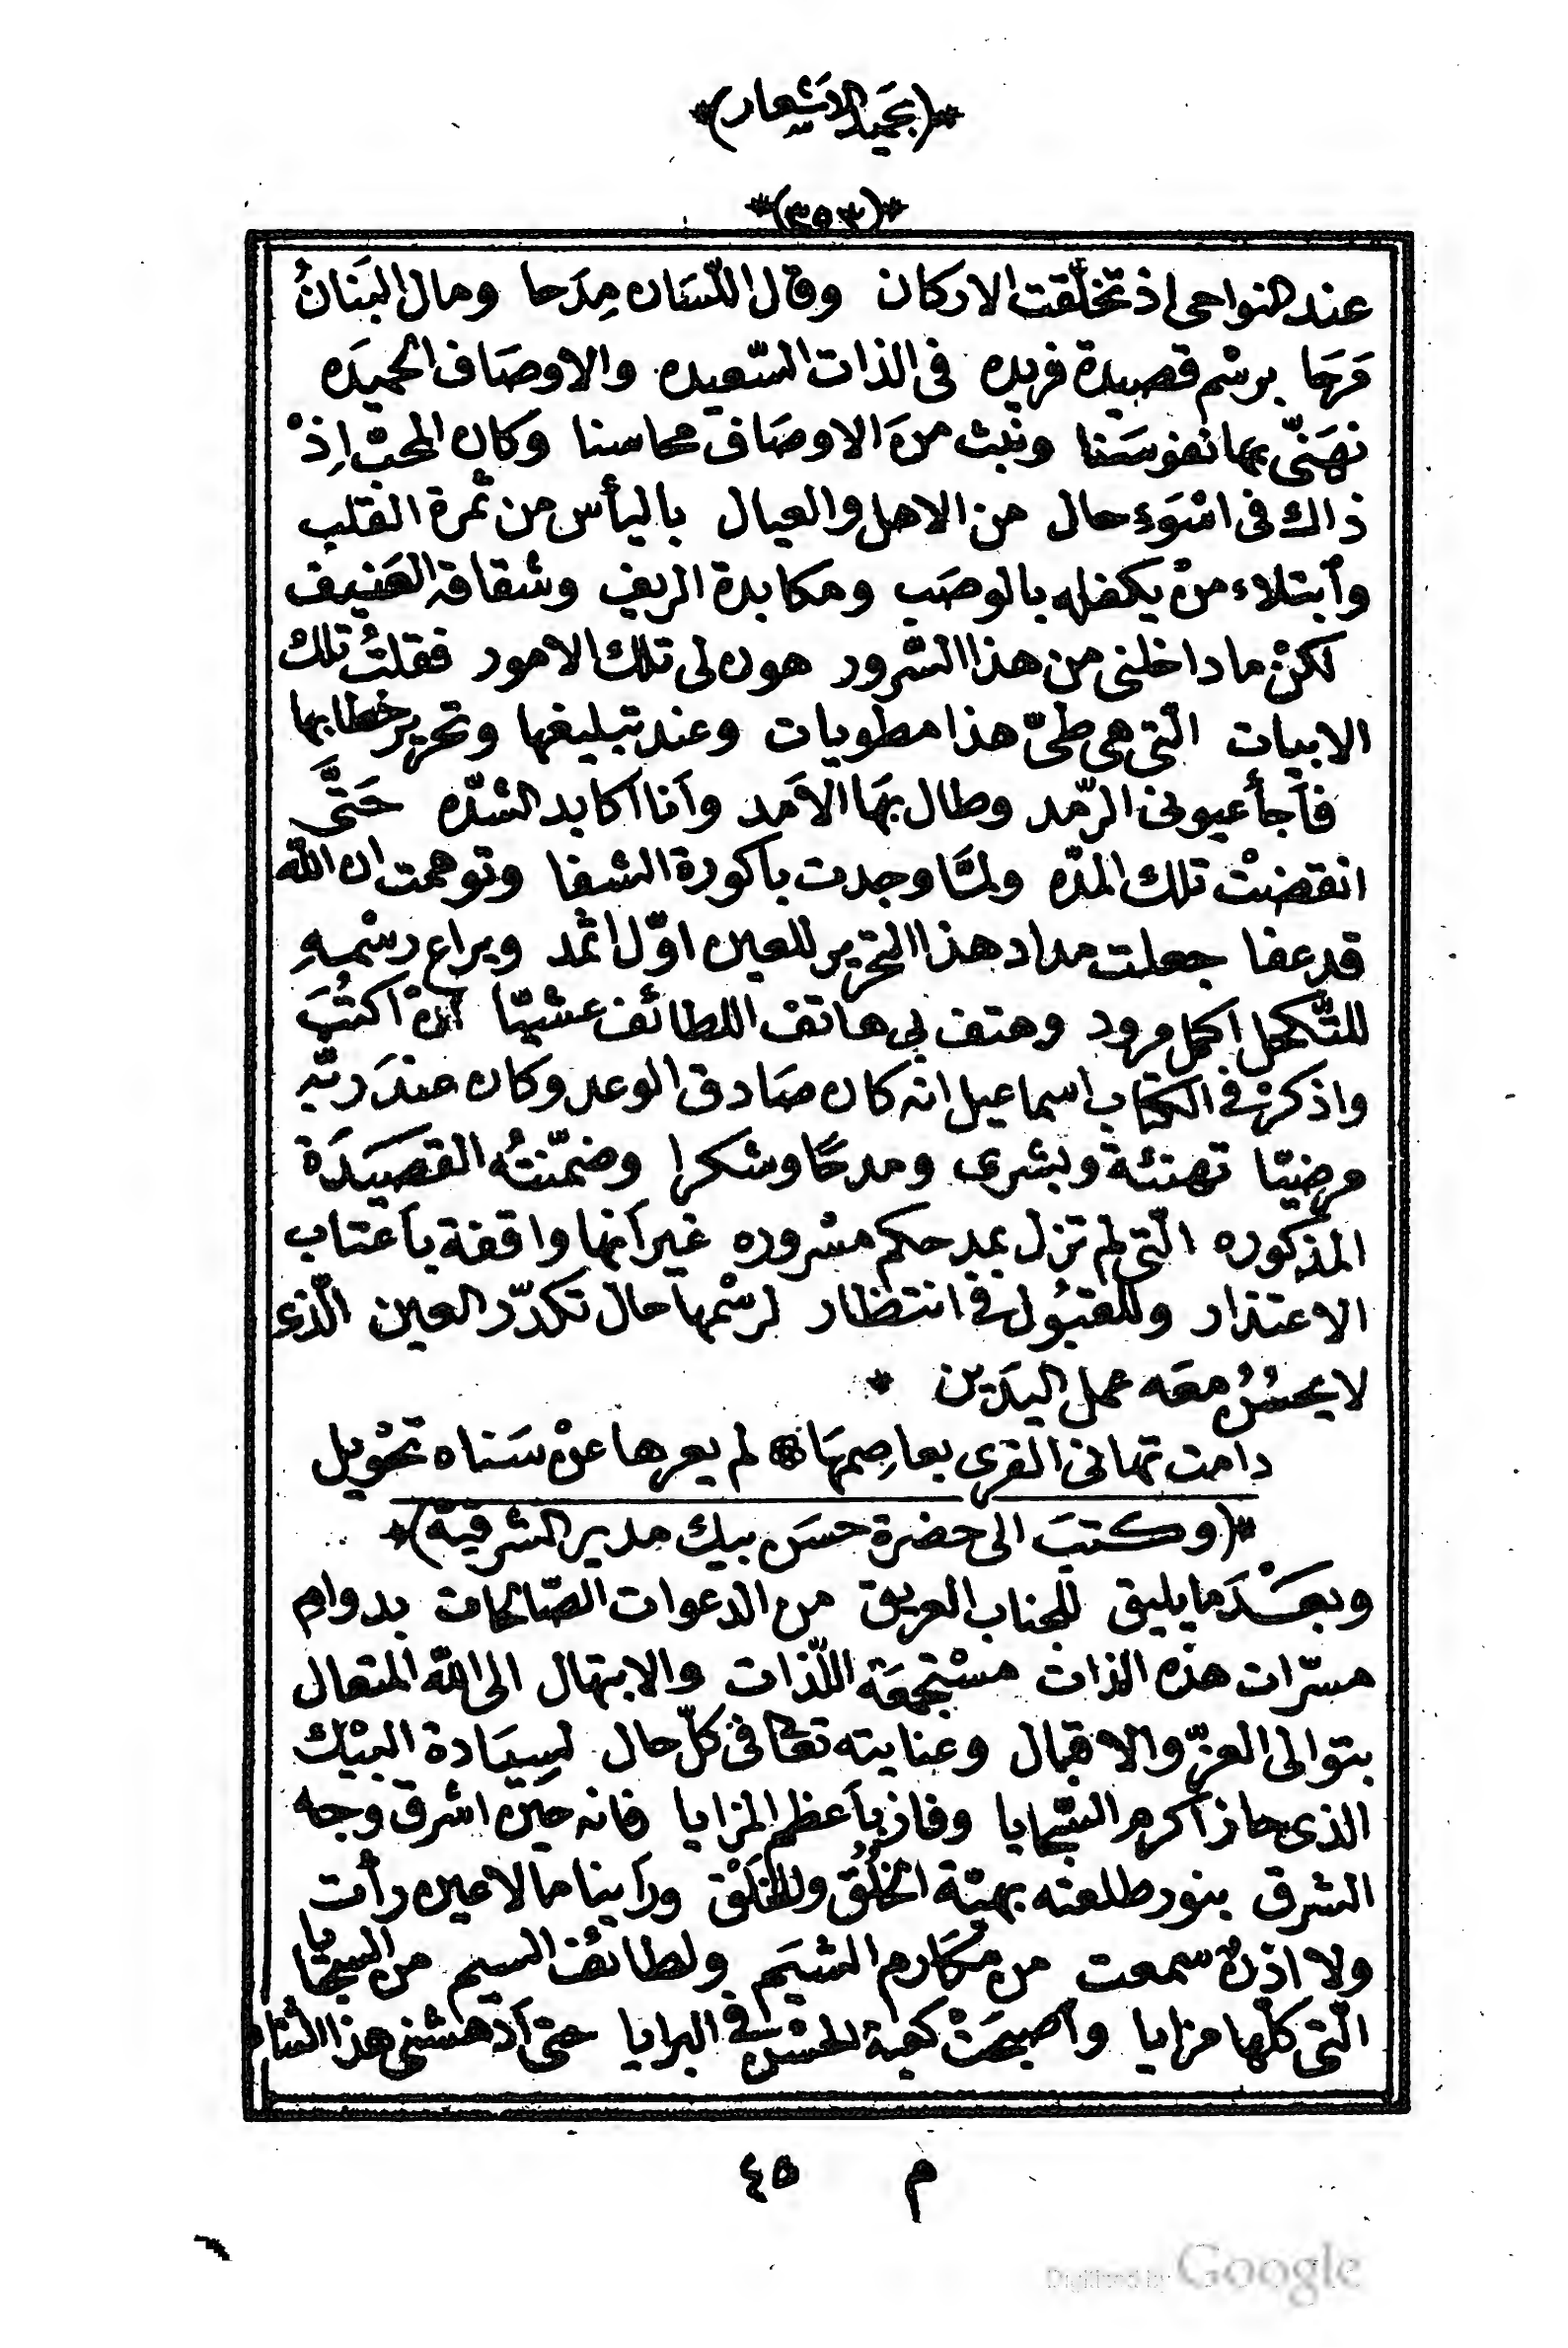 *(بحميد الاشعار)*
*(٣٥٣)*
عند النواحى اذ تخلّقت الاركان وقال اللّسَان مِدَحا ومال البَنانُ
مَرَحَا برسْم قصيدة فريده فى الذات السّعيده والاوصَاف الحميَده
نهَنّى بها نفوسَنا ونبث منَ الاوصَاف محاسنا وكان المحبّ اِذْ
ذاك فى اسْوَءِ حال من الاهل والعيال باليأس من ثمرة القلب
وأبتلاء منْ يكفله بالوصَب ومكابدة الريف وشقاقة العَنيف
لكنْ ما داخلنى من هذا السّرور هون لى تلك الامور فقلتُ تلك
الابيات الّتى هى طىّ هذا مطويات وعند تبليغها وتحرير خطابها
فآجأ عيونى الرّمد وطال بهَا الاَمَد وآنا اكابد الشدّه حَتَّى
انقضتْ تلك المدّه ولمّا وجدت باكورة الشفا وتوهمت ان الله
قد عفا جعلت مداد هذا التحرير للعين اوّل اثمد ويراع رسْمهِ
للتّكحل اكمل مرود وهتف بى هاتفْ اللطائف عشيّا انْ اكتُبَ
واذكرْ فى الكتاب اسماعيل انه كان صَادق الوعد وكان عندَ ربّه
مرضيّا تهنئة وبشرى ومدحًا وشكرا وضمّنتُه القصَيَدَة
المذكوره الّتى لم تزل بمدحكم مسروره غير أنها واقفة بآعتاب
الاعتذار وللقبُول فى انتظار لرسْمها حال تكدّر العين الّذى
لا يحسُنُ معَه عمل اليدَين *
دامت تهانى القرى بعاصِمهَا * لم يعرها عنْ سَناه تحْويل
*(وكتبَ الى حضرة حسَن بيك مدير الشرقيّة)*
وبعَسْدَ ما يليق للجناب العريق من الدعوات الصّالحات بدوام
مسرّات هذه الذات مسْتجمعَة اللّذات والابتهال الى الله المتعال
بتوالى العزّ والاقبال وعنايته تعالى فى كلّ حال لسِيَادة البيْك
الذى حاز اكرم السّجايا وفاز بآعظم المزايا فانه حيَن اشرق وجه
الشرق بنور طلعته بهيّة الخلُق والخلْق ورآينا ما لا عين رأت
ولا اذن سمعت من مكَارم الشيَم ولطائف السيم من السجايا
الّتى كلّها مزايا وآصبحَتْ كعبة الحسْن فى البرايا حتى آدهشنى هذا الثناء
م ٤٥
Digitized by Google